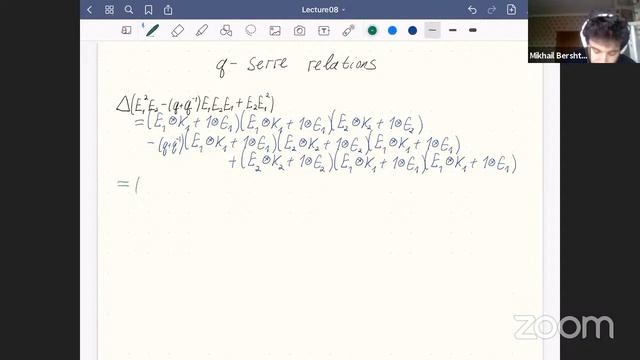 Lecture08
Mikhail Bersht...
q - serre relations
Δ(E₁²E₂ -(q+q⁻¹)E₁E₂E₁ + E₂E₁²)
= (E₁⊗K₁ + 1⊗E₁)(E₁⊗K₁ + 1⊗E₁)(E₂⊗K₂ + 1⊗E₂)
-(q+q⁻¹)(E₁⊗K₁ + 1⊗E₁)(E₂⊗K₂ + 1⊗E₂)(E₁⊗K₁ + 1⊗E₁)
+ (E₂⊗K₂ + 1⊗E₂)(E₁⊗K₁ + 1⊗E₁)(E₁⊗K₁ + 1⊗E₁)
= (
zoom